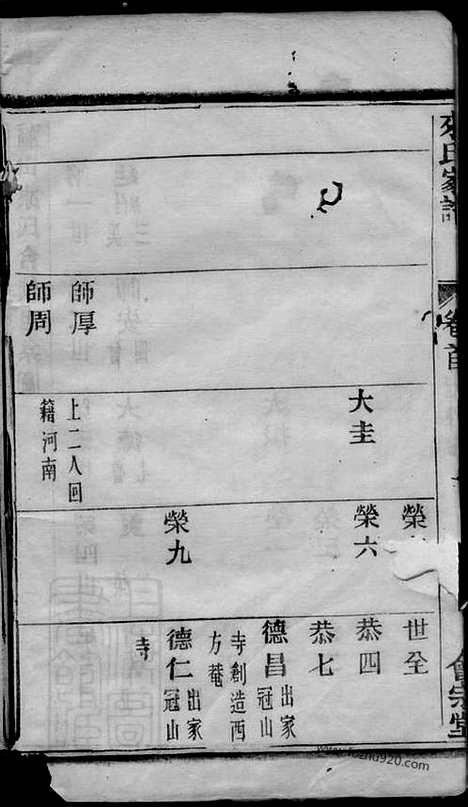 氏家譜
卷首
會宗堂
師厚
師周
大圭
上二人回
籍河南
榮
榮六
榮九
世全
恭四
恭七
德昌出家冠山
寺創造西
方菴
德仁出家冠山
寺
www.fozhu920.com